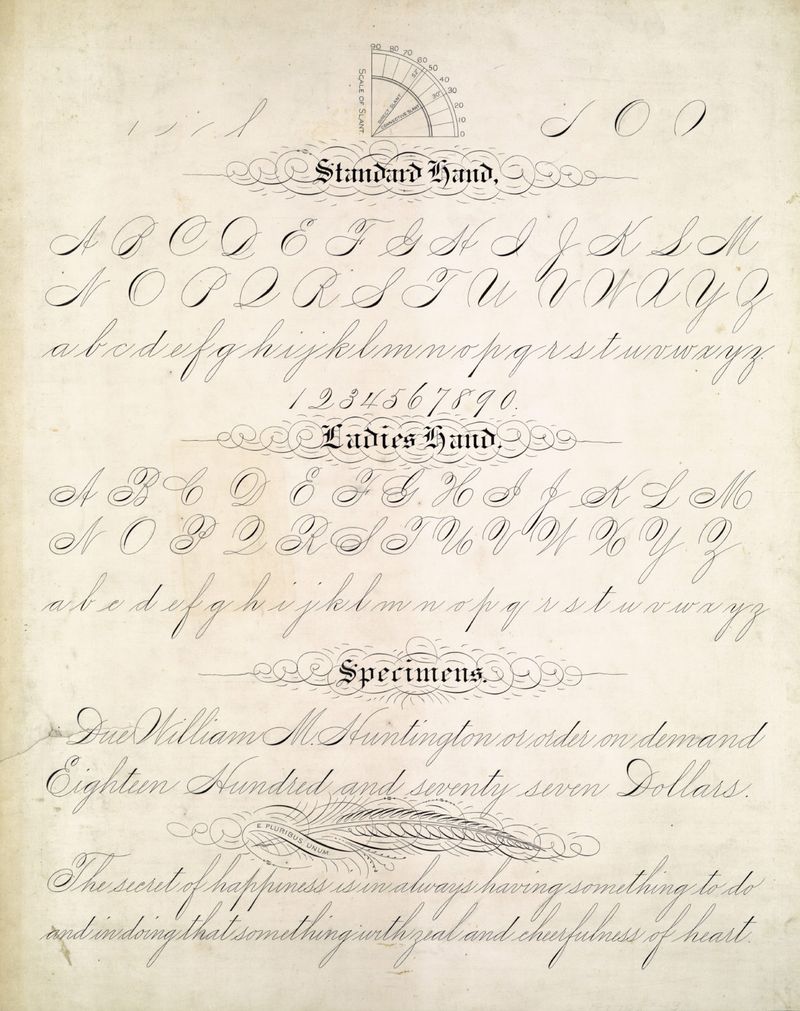 90 80 70 60 50 40 30 20 10 0
52°
30°
SCALE OF SLANT.
DIRECT SLANT
CONNECTIVE SLANT
Standard Hand,
A B C D E F G H I J K L M
N O P Q R S T U V W X Y Z
a b c d e f g h i j k l m n o p q r s t u v w x y z
1 2 3 4 5 6 7 8 9 0.
Ladies Hand.
A B C D E F G H I J K L M
N O P Q R S T U V W X Y Z
a b c d e f g h i j k l m n o p q r s t u v w x y z
Specimens.
Due William M. Huntington or order on demand
Eighteen Hundred and seventy seven Dollars.
E PLURIBUS UNUM
The secret of happiness is in always having something to do
and in doing that something with zeal and cheerfulness of heart.